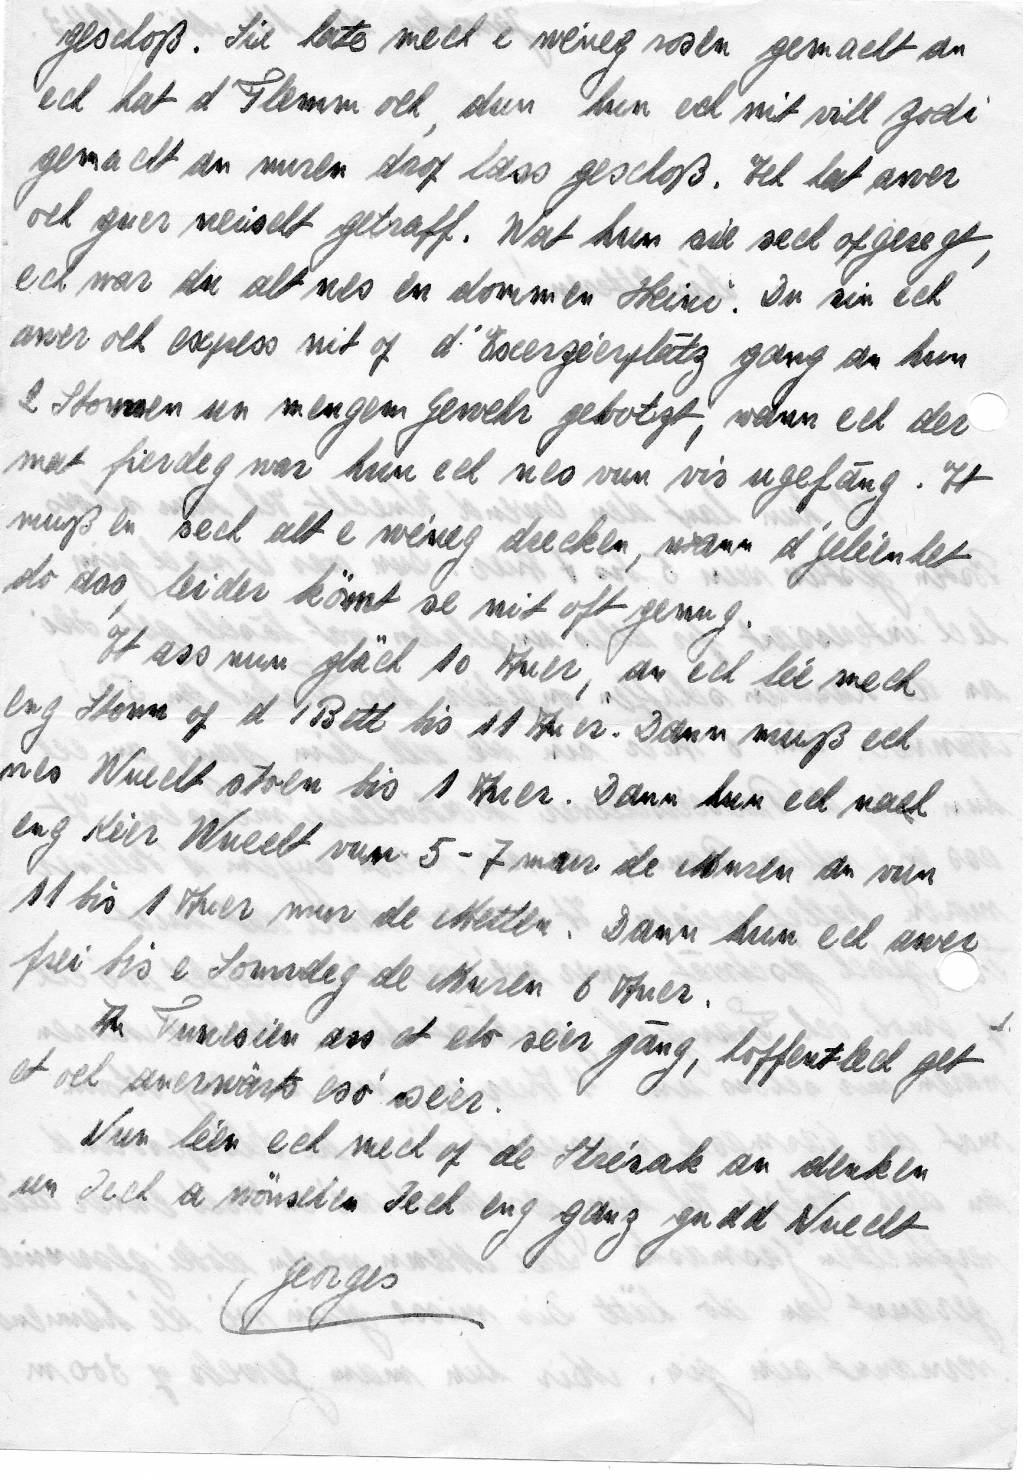 geschoß. Sie hate mech e wéineg rosen gemacht an
ech hat d'Flemm och, dun hun ech nit vill Zodi
gemacht an nuren drop lass geschoß. Ich hat awer
och guer neischt getraff. Wat hun sie sech opgeregt,
ech war du alt nes en dommen Heini. Du sin ech
awer och express nit op d'Exerzéierplätz gang an hun
2 Stonnen un mengem Gewehr gebotzt, wann ech der
mat fierdeg war hun ech nes vun vis ugefäng. It
muß en sech alt e wéineg drecken, wann d'Geléenhet
do ass, leider kömt se nit oft genug.
It ass nun gläch 10 Auer, an ech lée mech
eng Stonn op d'Bett bis 11 Auer. Dann muß ech
nes Wuecht stoen bis 1 Auer. Dann hun ech nach
eng Kéier Wuecht vun 5-7 muar de Muren an vun
11 bis 1 Auer mur de Metten. Dann hun ech awer
frei bis e Sonndeg de Muren 6 Auer.
An Tunesien ass et elo séier gäng, hoffentlech get
et och anerwärts esó séier.
Nun léen ech mech op de Strésak an denken
un Iech a wönschen Iech eng ganz gudd Nuecht
Georges